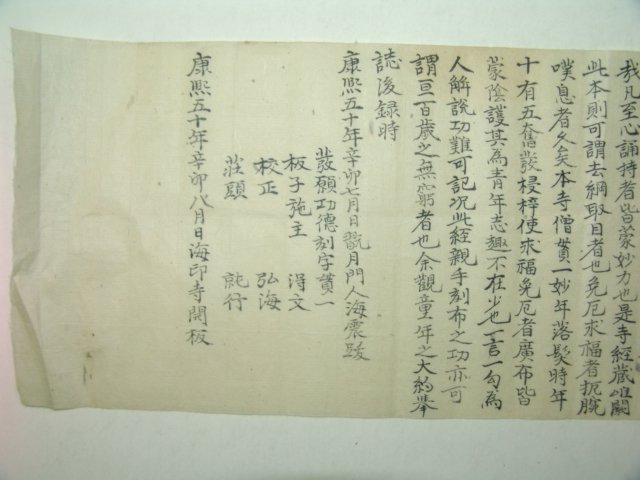 我凡至心誦持者皆蒙妙力也是寺經藏唯闕
此本則可謂去綱取目者也免厄求福者扼腕
嘆息者久矣本寺僧貫一妙年落髮時年
十有五奮發梓使求福免厄者廣布皆
蒙陰護其為青年志趣不在少也一言一句為
人解說功難可記况此經親手刻布之功亦可
謂亘百歲之無窮者也余觀童年之大約舉
誌後錄時
康熙五十年辛卯七月日翫月門人海震跋
發願功德刻字貫一
板子施主 淂文
校正 弘海
莊頭 就行
康熙五十年辛卯八月日海印寺開板